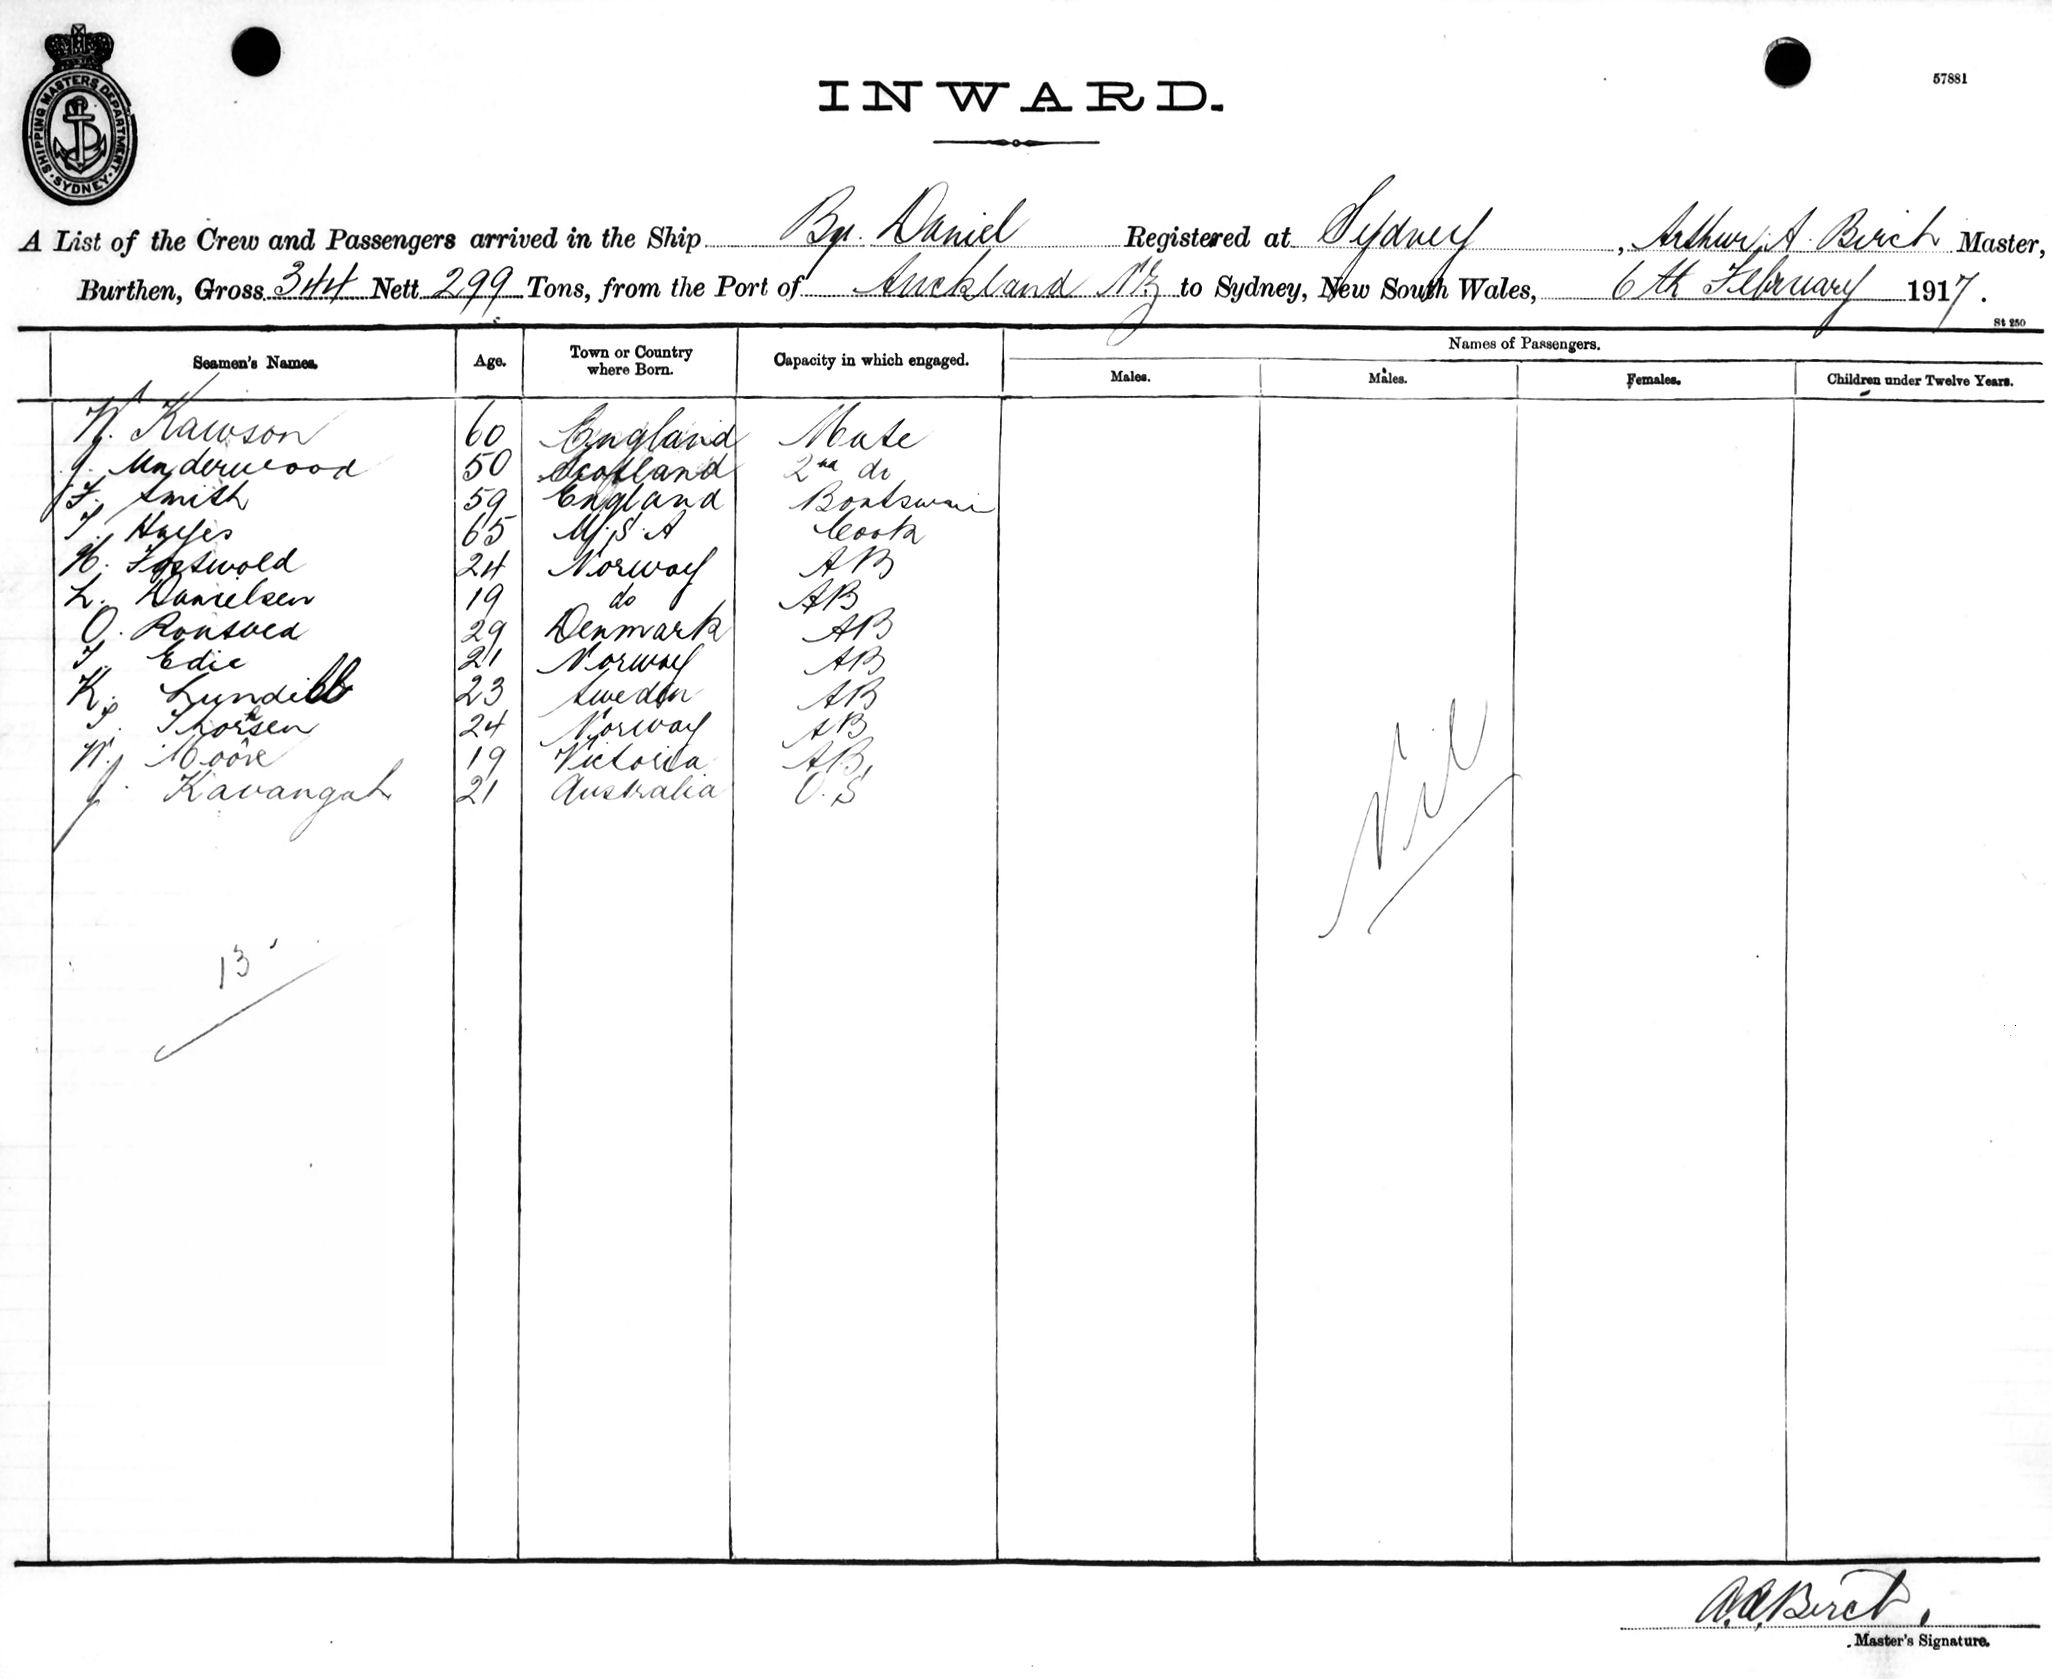 SHIPPING MASTERS DEPARTMENT
SYDNEY
INWARD.
57881
A List of the Crew and Passengers arrived in the Ship Bq. Daniel Registered at Sydney, Arthur A. Birch Master,
Burthen, Gross 344 Nett 299 Tons, from the Port of Auckland NZ to Sydney, New South Wales, 6th February 1917.
St 250
Seamen's Names. Age. Town or Country where Born. Capacity in which engaged. Names of Passengers.
Males. Males. Females. Children under Twelve Years.
W. Rawson 60 England Mate
J. Underwood 50 Scotland 2nd do
F. Smith 59 England Boatswain
T. Hayes 65 U.S.A Cook
H. 24 Norway AB
L. Danielsen 19 do AB
O. 29 Denmark AB
T. Edie 21 Norway AB
K. Lundell 23 Sweden AB
Thorsen 24 Norway AB
W. Moore 19 Victoria AB
J. Kavangah 21 Australia O.S
Nil
13
A.A. Birch.
Master's Signature.